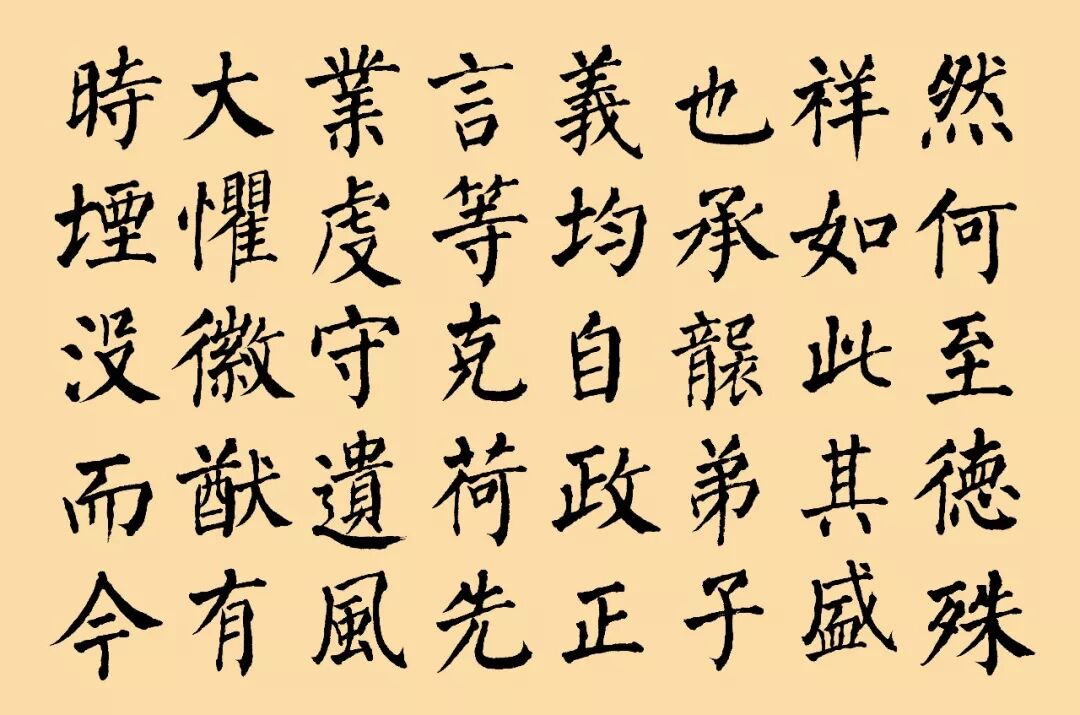 然何至德殊
祥如此其盛
也承襲弟子
義均自政正
言等克荷先
業虔守遺風
大懼徽猷有
時堙没而今